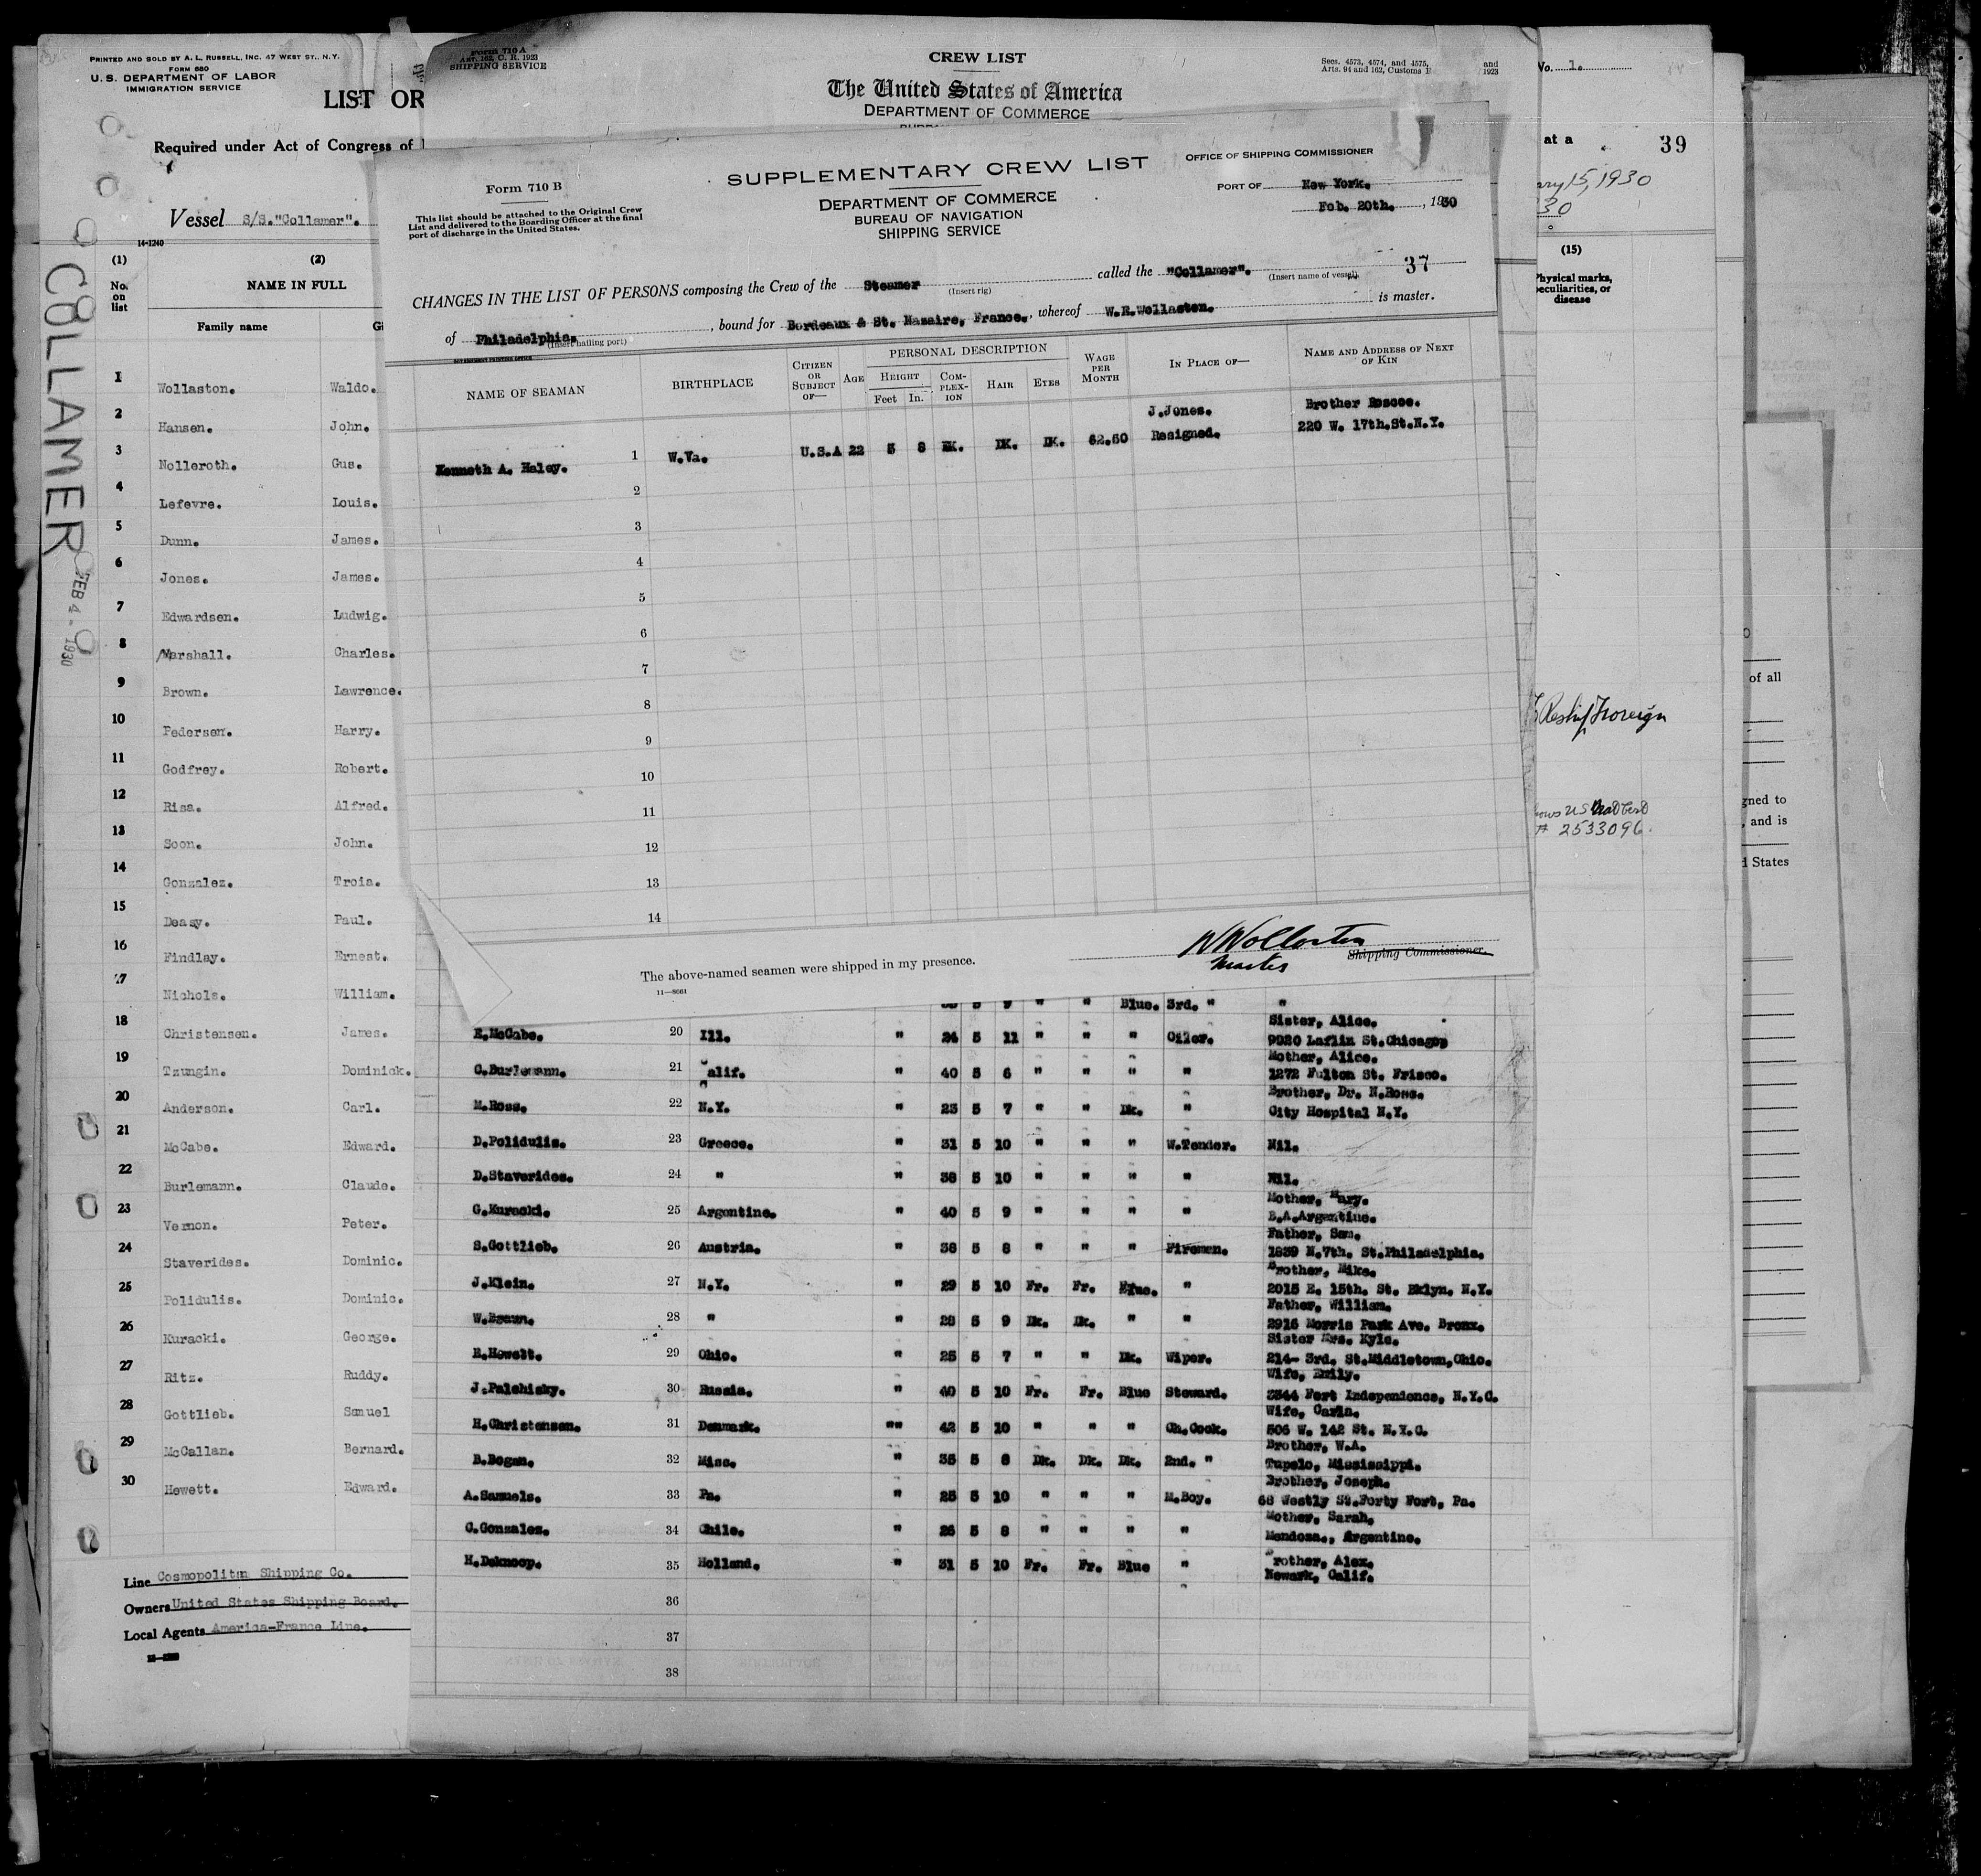 PRINTED AND SOLD BY A. L. RUSSELL, INC. 47 WEST ST., N.Y.
FORM 680
U. S. DEPARTMENT OF LABOR
IMMIGRATION SERVICE
LIST OR
Required under Act of Congress of
Vessel S/S. "Collamer".
14-1240
COLLAMER
FEB 4 - 1930
(1) (2)
No. on list NAME IN FULL
Family name
1 Wollaston. Waldo.
2 Hansen. John.
3 Nolleroth. Gus.
4 Lefevre. Louis.
5 Dunn. James.
6 Jones. James.
7 Edwardsen. Ludwig.
8 Marshall. Charles.
9 Brown. Lawrence.
10 Pedersen. Harry.
11 Godfrey. Robert.
12 Risa. Alfred.
13 Soon. John.
14 Gonzalez. Trois.
15 Deasy. Paul.
16 Findlay. Ernest.
17 Nichols. William.
18 Christensen. James.
19 Tzungin. Dominick.
20 Anderson. Carl.
21 McCabe. Edward.
22 Burlemann. Claude.
23 Vernon. Peter.
24 Staverides. Dominic.
25 Polidulis. Dominic.
26 Kuracki. George.
27 Ritz. Ruddy.
28 Gottlieb. Samuel
29 McCallan. Bernard.
30 Hewett. Edward.
Line Cosmopolitan Shipping Co.
Owners United States Shipping Board.
Local Agents America-France Line.
Form 710 A
Art. 162, C. R. 1923
SHIPPING SERVICE
CREW LIST
The United States of America
DEPARTMENT OF COMMERCE
Secs. 4573, 4574, and 4575, and
Arts. 94 and 162, Customs 1923
Form 710 B
This list should be attached to the Original Crew
List and delivered to the Boarding Officer at the final
port of discharge in the United States.
SUPPLEMENTARY CREW LIST
DEPARTMENT OF COMMERCE
BUREAU OF NAVIGATION
SHIPPING SERVICE
OFFICE OF SHIPPING COMMISSIONER
PORT OF New York.
Feb. 20th. , 1930
37
CHANGES IN THE LIST OF PERSONS composing the Crew of the Steamer (Insert rig) called the "Collamer". (Insert name of vessel)
of Philadelphia. (Insert hailing port), bound for Bordeaux & St. Nazaire, France., whereof W.R.Wollaston. is master.
GOVERNMENT PRINTING OFFICE
NAME OF SEAMAN BIRTHPLACE CITIZEN OR SUBJECT OF— AGE PERSONAL DESCRIPTION HEIGHT Feet In. COMPLEXION HAIR EYES WAGE PER MONTH IN PLACE OF— NAME AND ADDRESS OF NEXT OF KIN
J.Jones. Brother Roscoe.
Kenneth A. Haley. 1 W.Va. U.S.A 22 5 8 DK. DK. DK. 62.50 Resigned. 220 W. 17th.St.N.Y.
2
3
4
5
6
7
8
9
10
11
12
13
14
The above-named seamen were shipped in my presence.
W Wollaston
Master
Shipping Commissioner.
11—8061
5 9 " " Blue. 3rd. " "
Sister, Alice.
E.McCabe. 20 Ill. " 24 5 11 " " " Oiler. 9920 Laflin St.Chicago,
Mother, Alice.
C.Burlemann. 21 Calif. " 40 5 6 " " " " 1272 Fulton St. Frisco.
Brother, Dr. N.Ross.
M.Ross. 22 N.Y. " 23 5 7 " " Dk. " City Hospital N.Y.
D.Polidulis. 23 Greece. " 31 5 10 " " " W.Tender. Nil.
D.Staverides. 24 " " 38 5 10 " " " " Nil.
Mother, Mary.
G.Kuracki. 25 Argentine. " 40 5 9 " " " " B.A.Argentine.
Father, Sam.
S.Gottlieb. 26 Austria. " 38 5 8 " " " Firemen. 1839 N.7th. St.Philadelphia.
Brother, Mike.
J.Klein. 27 N.Y. " 29 5 10 Fr. Fr. Blue. " 2015 E. 15th. St. Bklyn. N.Y.
Father, William.
W.Braun. 28 " " 28 5 9 Dk. Dk. " " 2916 Morris Park Ave. Bronx.
Sister Mrs. Kyle.
E.Hewett. 29 Ohio. " 25 5 7 " " Dk. Wiper. 214- 3rd. St.Middletown,Ohio.
Wife, Emily.
J.Palchisky. 30 Russia. " 40 5 10 Fr. Fr. Blue Steward. 3344 Fort Independence, N.Y.C.
Wife, Carla.
H.Christensen. 31 Denmark. "" 42 5 10 " " " Ch.Cook. 506 W. 142 St. N.Y.C.
Brother, W.A.
B.Bogan. 32 Miss. " 35 5 8 Dk. Dk. Dk. 2nd. " Tupelo, Mississippi.
Brother, Joseph.
A.Samuels. 33 Pa. " 25 5 10 " " " M.Boy. 68 Westly St.Forty Fort, Pa.
Mother, Sarah.
C.Gonzalez. 34 Chile. " 26 5 8 " " " " Mendoza., Argentine.
Brother, Alex.
H.Deknoop. 35 Holland. " 31 5 10 Fr. Fr. Blue " Newark, Calif.
36
37
38
No. 1.
at a
39
ary 15, 1930
30
(15)
Physical marks, peculiarities, or disease
Reship Foreign
# 2533096
of all
gned to
, and is
d States